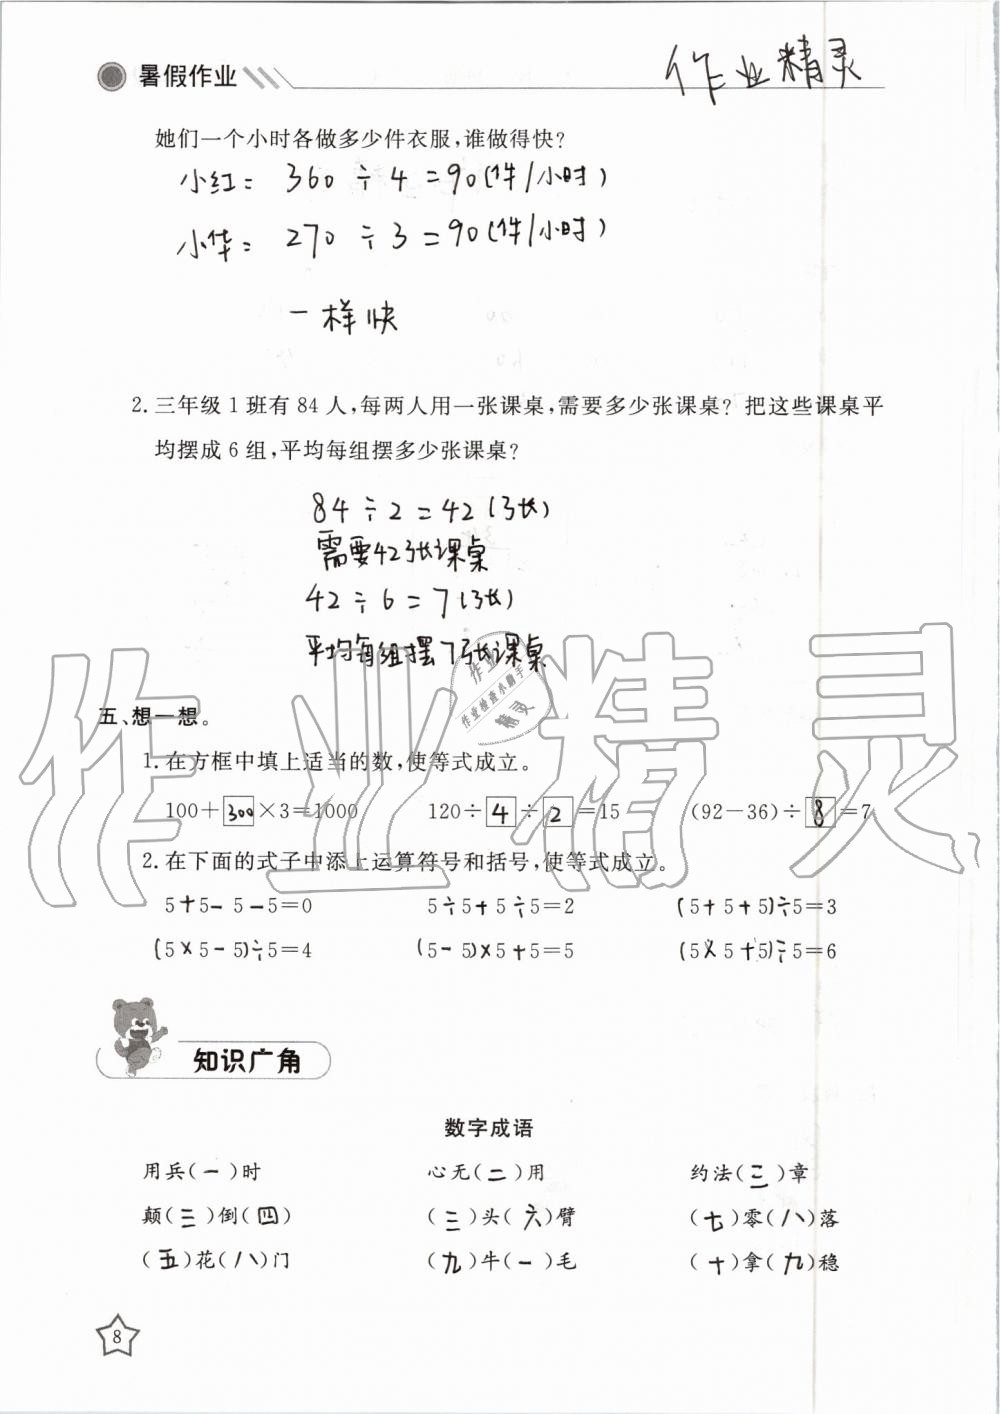 暑假作业
作业精灵
她们一个小时各做多少件衣服,谁做得快?
小红: 360÷4=90(件/小时)
小华: 270÷3=90(件/小时)
一样快
2. 三年级1班有84人,每两人用一张课桌,需要多少张课桌? 把这些课桌平
均摆成6组,平均每组摆多少张课桌?
84÷2=42(张)
需要42张课桌
42÷6=7(张)
平均每组摆7张课桌
作业
作业检查小助手
精灵
作业精灵
五、想一想。
1. 在方框中填上适当的数,使等式成立。
100+300×3=1000 120÷4÷2=15 (92-36)÷8=7
2. 在下面的式子中添上运算符号和括号,使等式成立。
5+5-5-5=0 5÷5+5÷5=2 (5+5+5)÷5=3
(5×5-5)÷5=4 (5-5)×5+5=5 (5×5+5)÷5=6
知识广角
数字成语
用兵(一)时 心无(二)用 约法(三)章
颠(三)倒(四) (三)头(六)臂 (七)零(八)落
(五)花(八)门 (九)牛(一)毛 (十)拿(九)稳
8